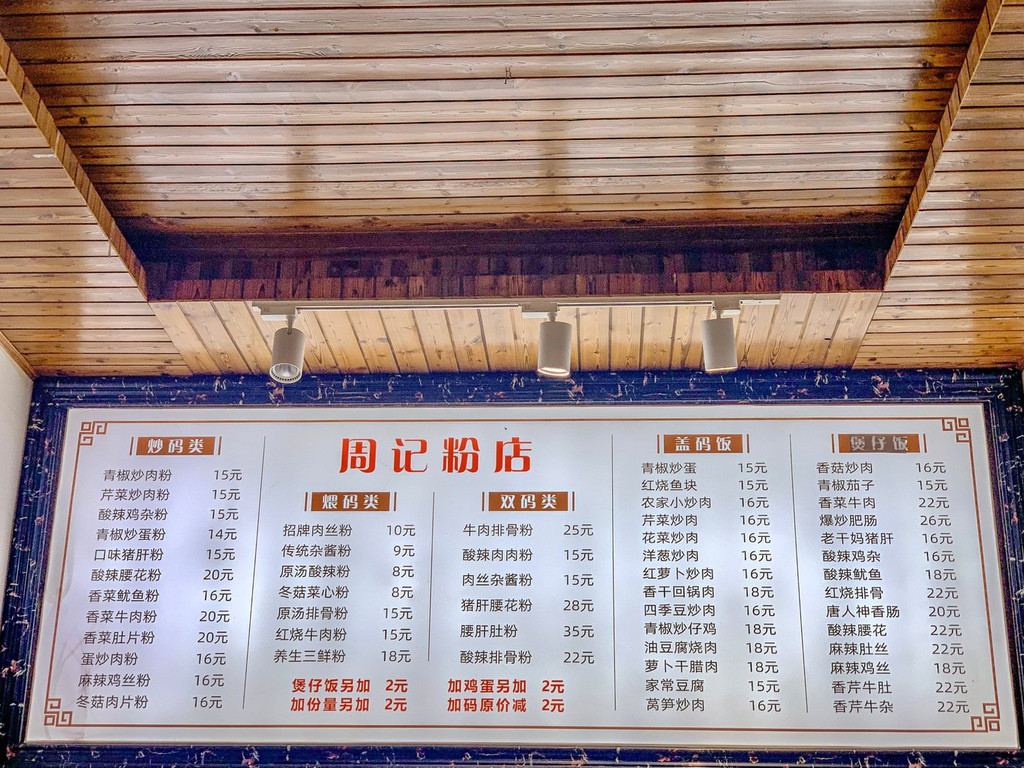 周记粉店
炒码类
青椒炒肉粉 15元
芹菜炒肉粉 15元
酸辣鸡杂粉 15元
青椒炒蛋粉 14元
口味猪肝粉 15元
酸辣腰花粉 20元
香菜鱿鱼粉 16元
香菜牛肉粉 20元
香菜肚片粉 20元
蛋炒肉粉 16元
麻辣鸡丝粉 16元
冬菇肉片粉 16元
煨码类
招牌肉丝粉 10元
传统杂酱粉 9元
原汤酸辣粉 8元
冬菇菜心粉 8元
原汤排骨粉 15元
红烧牛肉粉 15元
养生三鲜粉 18元
双码类
牛肉排骨粉 25元
酸辣肉肉粉 15元
肉丝杂酱粉 15元
猪肝腰花粉 28元
腰肝肚粉 35元
酸辣排骨粉 22元
煲仔饭另加 2元 加鸡蛋另加 2元
加份量另加 2元 加码原价减 2元
盖码饭
青椒炒蛋 15元
红烧鱼块 15元
农家小炒肉 16元
芹菜炒肉 16元
花菜炒肉 16元
洋葱炒肉 16元
红萝卜炒肉 16元
香干回锅肉 18元
四季豆炒肉 16元
青椒炒仔鸡 18元
油豆腐烧肉 18元
萝卜干腊肉 18元
家常豆腐 15元
莴笋炒肉 16元
煲仔饭
香菇炒肉 16元
青椒茄子 15元
香菜牛肉 22元
爆炒肥肠 26元
老干妈猪肝 16元
酸辣鸡杂 16元
酸辣鱿鱼 18元
红烧排骨 22元
唐人神香肠 20元
酸辣腰花 22元
麻辣肚丝 22元
麻辣鸡丝 18元
香芹牛肚 22元
香芹牛杂 22元